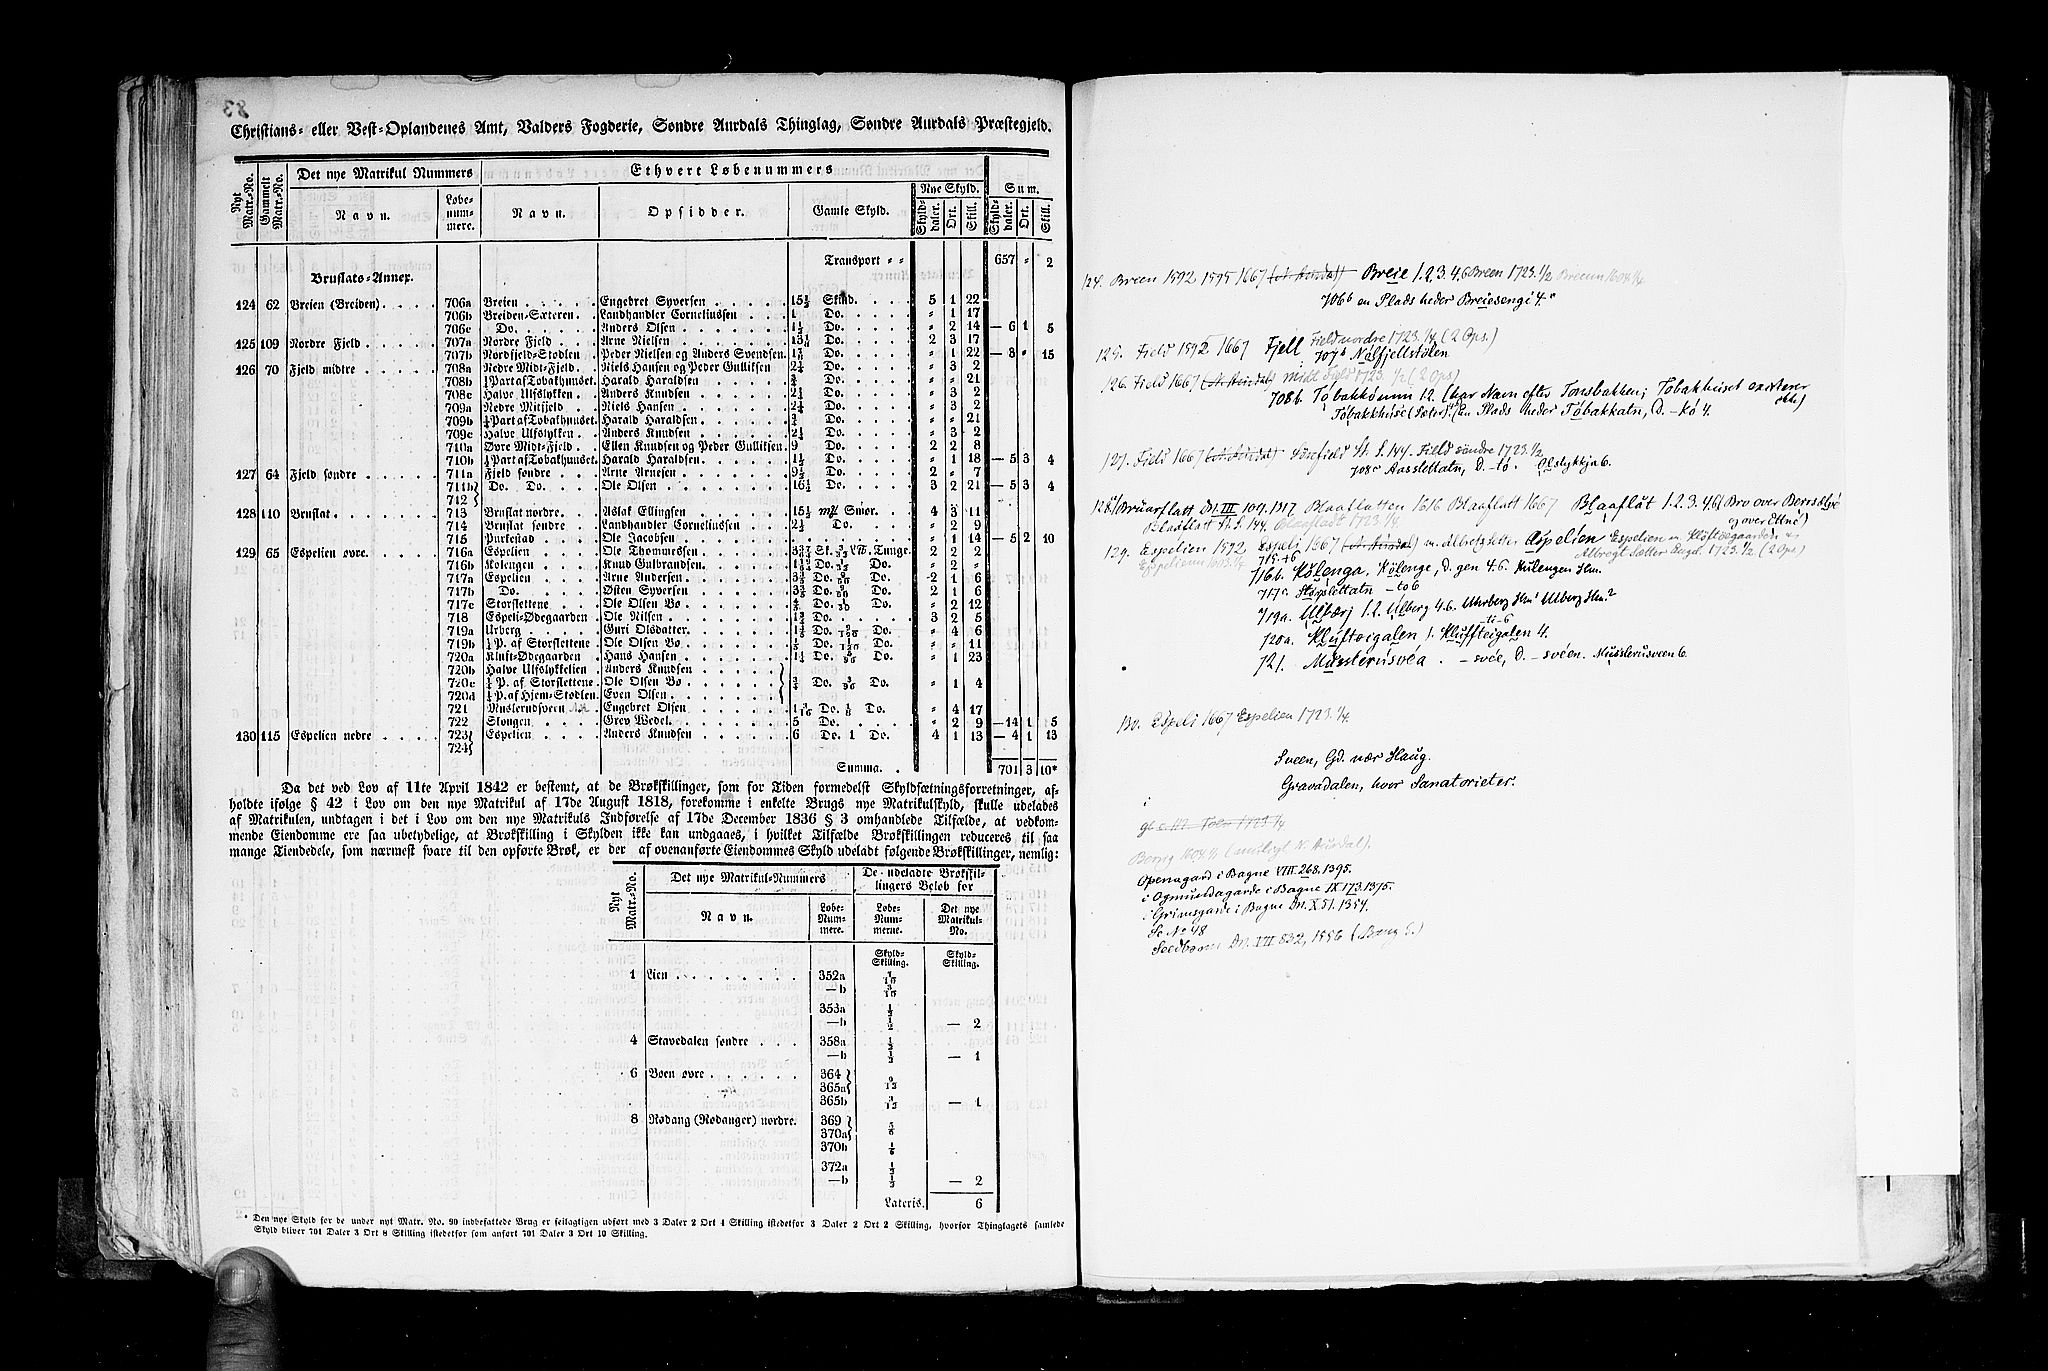 83
Christians- eller Vest-Oplandenes Amt, Valders Fogderie, Søndre Aurdals Thinglag, Søndre Aurdals Præstegjeld.
Nyt Matr.-No. Gammelt Matr.-No. Det nye Matrikul Nummers Ethvert Løbenummers
Navn. Løbe-nummere. Navn. Opsidder. Gamle Skyld. Nye Skyld. Sum.
Skyld-daler. Ort. Skill. Skyld-daler. Ort. Skill.
Transport " " 657 " 2
Bruflats-Annex.
124 62 Breien (Breiden) 706a Breien Engebret Syversen 15½ Skind. 5 1 22
706b Breiden-Sæteren Landhandler Corneliussen 1 Do. " 1 17
706c Do. Anders Olsen 1½ Do. " 2 14 — 6 1 5
125 109 Nordre Field 707a Nordre Field Arne Nielsen Do. 2 3 17
707b Nordfjeld-Stødlen Peder Nielsen og Anders Svendsen Do. " 1 22 — 3 " 15
126 70 Fjeld midtre 708a Nedre Midt-Fjeld Niels Hansen og Peder Gulliksen 2¼ Do. " 3 2
708b ¼ Part af Tobakhunset. Harald Haraldsen ¾ Do. " " 21
708c Halve Ulfslykken Anders Knudsen 2¼ Do. " 3 2
709a Nedre Mitfjeld Niels Hansen 2¼ Do. " 3 2
709b ¼ Part af Tobakhunset. Harald Haraldsen ¾ Do. " " 21
709c Halve Ulfslykken Anders Knudsen 2¼ Do. " 3 2
710a Øvre Midt-Fjeld Ellen Knudsen og Peder Gulliksen 9 Do. 2 2 8
710b ½ Part af Tobakhunset. Harald Haraldsen 1½ Do. " 1 18 — 5 3 4
127 64 Fjeld søndre 711a Fjeld søndre Arne Arnesen 9½ Do. 2 " 7
711b Do. Do. Ole Olsen 16½ Do. 3 2 21 — 5 3 4
712
128 110 Bruflat 713 Bruflat nordre Aslak Ellingsen 15½ Smør. 4 3 11
714 Bruflat søndre Landhandler Corneliussen 2½ Do. " 2 9
715 Purkestad Ole Jacobsen " 1 14 — 5 2 10
129 65 Espelien øvre 716a Espelien Ole Thommessen Tunge. 2 2 2
716b Kolengen Knud Gulbrandsen Do. Do. " 2 "
717a Espelien Arne Andersen Do. Do. 2 1 6
717b Do. Østen Syversen Do. Do. 2 1 6
717c Storslettene Ole Olsen Bø Do. Do. " 2 12
718 Espeli-Ødegaarden Ole Nilsen Do. 3 2 5
719a Urberg Guri Olsdatter Do. Do. " 4 6
719b ½ P. af Storslettene Ole Olsen Bø Do. Do. " " 11
720a Kluft-Ødegaarden Hans Hansen Do. Do. " 1 23
720b Halve Ulfslykkelien Anders Knudsen
720c ½ P. af Storslettene Ole Olsen Bø Do. Do. " 1 4
720d ½ P. af Hjem-Stødlen Even Olsen
721 Muslerudsveen Engebret Olsen Do. Do. " 4 17
722 Slongen Grev Wedel 5 Do. " 2 9 —14 1 5
130 115 Espelien nedre 723 Espelien Anders Knudsen 6 Do. 1 Do. 4 1 13 — 4 1 13
724
Summa. 701 3 10*
Da det ved Lov af 11te April 1842 er bestemt, at de Brøkskillinger, som for Tiden formedelst Skyldsætningsforretninger, af-
holdte ifølge § 42 i Lov om den nye Matrikul af 17de August 1818, forekomme i enkelte Brugs nye Matrikulskyld, skulle udelades
af Matrikulen, undtagen i det i Lov om den nye Matrikuls Indførelse af 17de December 1836 § 3 omhandlede Tilfælde, at vedkom-
mende Eiendomme ere saa ubetydelige, at Brøkskilling i Skylden ikke kan undgaaes, i hvilket Tilfælde Brøkskillingen reduceres til saa
mange Tiendedele, som nærmest svare til den opførte Brøk, er der af ovenanførte Eiendommes Skyld udeladt følgende Brøkskillinger, nemlig:
Nyt Matr.-No. Det nye Matrikul-Nummers De udeladte Brøkskil-lingers Beløb for
Navn. Løbe-Num-mere. Løbe-Num-merne. Det nye Matrikul-No.
Skyld-Skilling. Skyld-Skilling.
1 Lien 352a
—b
353a ½
—b ½ — 2
4 Stavedalen søndre 358a ½
—b ½ — 1
6 Boen øvre 364
365a 9/12
365b 3/12 — 1
8 Rødang (Rødanger) nordre. 369
370a 5/6
370b 1/6
372a ½
—b ½ — 2
Lateris. 6
* Den nye Skyld for de under nyt Matr. No. 90 indbefattede Brug er feilagtigen udført med 3 Daler 2 Ort 4 Skilling istedetfor 3 Daler 2 Ort 2 Skilling, hvorfor Thinglagets samlede
Skyld bliver 701 Daler 3 Ort 8 Skilling istedetfor som anført 701 Daler 3 Ort 10 Skilling.
124. Breen 1592 1595 1667 (N. Aurdal) Breie 1.2.3.4.6 Breen 1723.1/2 Breenn 1604.1/4
706b en Plads heder Breiesengi 4.
125. Field 1592 1667 Fjell Field nordre 1723.1/4 (2 Ops.)
707b Nølfjellstølen
126. Field 1667 (N. Aurdal) midt Field 1723.1/2 (2 Ops)
708b. Tobakkonun 12. (har Navn efter Tonsbakken; Tobakhuset existerer
Tobakkhuse (Sæter) (En Plads heder Tobakkatn, D. -kó 4. ikke)
127. Field 1667 (N. Aurdal) Sørefield St. S. 144. Field söndre 1723.1/2
708c Aasslettatn, D. -tó. Olslykkja 6.
128. Brúarflatt DN. III 1917 Blaaflatten 1616 Blaaflatt 1667 Blaaflât 1.2.3.4.6 (Bro over
Bladflatt St. S. 144. Blaafladt 1723.1/4 og over Etne)
129. Espelien 1592 Espeli 1667 (N. Aurdal) m. Albretzletter Espelien Espelien m. Klöftödegaarden
Espelienn 1603.1/4 715.4.6 Albregt Sletter Engel. 1723.1/2 (2 Ops.)
716b. Kölenga, Kölenge, D. gen 4.6. Kulengen Hm.
717c. Storslettatn -to 6
719a. Ulbærj 1.2. Ulberg 4.6. Uhrberg Hm! Ulberg Hm.?
720a. Kluftøigalen 1. Klufftøigalen 4.
721. Mússterúsvéa. -svée, D. -svéen. Musslerusveen 6.
130. Espeli 1667 Espelien 1723.1/4.
Sveen, Gd. nær Haug.
Gravadalen, hvor Sanatoriet er.
i
1723.1/4
1604.1/1 N. Aurdal).
Openagard i Bagne VIII.268.1395.
i Ogmundagarde i Bagne IX 173.1375.
i Grimsgarde i Bagne DN. X 51. 1354.
Se No 48
DN. VIII 832, 1856 (Bang S.)